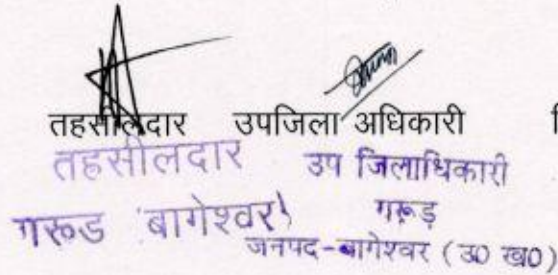 तहसीलदार उपजिला अधिकारी
तहसीलदार उप जिलाधिकारी
गरूड बागेश्वर गरूड़
जनपद-बागेश्वर (उ0 ख0)